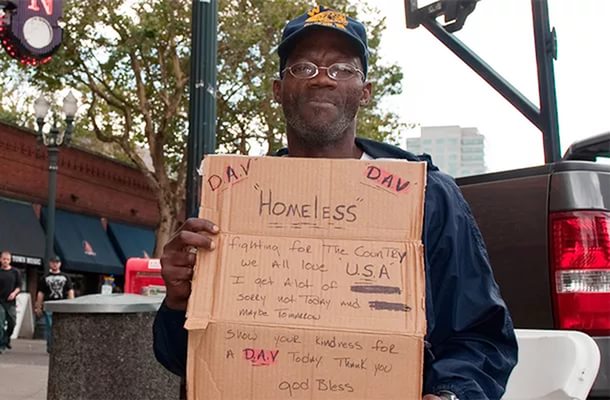 N
D.A.V D.A.V
"Homeless"
fighting for The Country
we All love "U.S.A"
I get Alot of
sorry not Today and
maybe Tomorrow
Show your kindness for
A D.A.V Today Thank you
god Bless
TOWN MUSIC